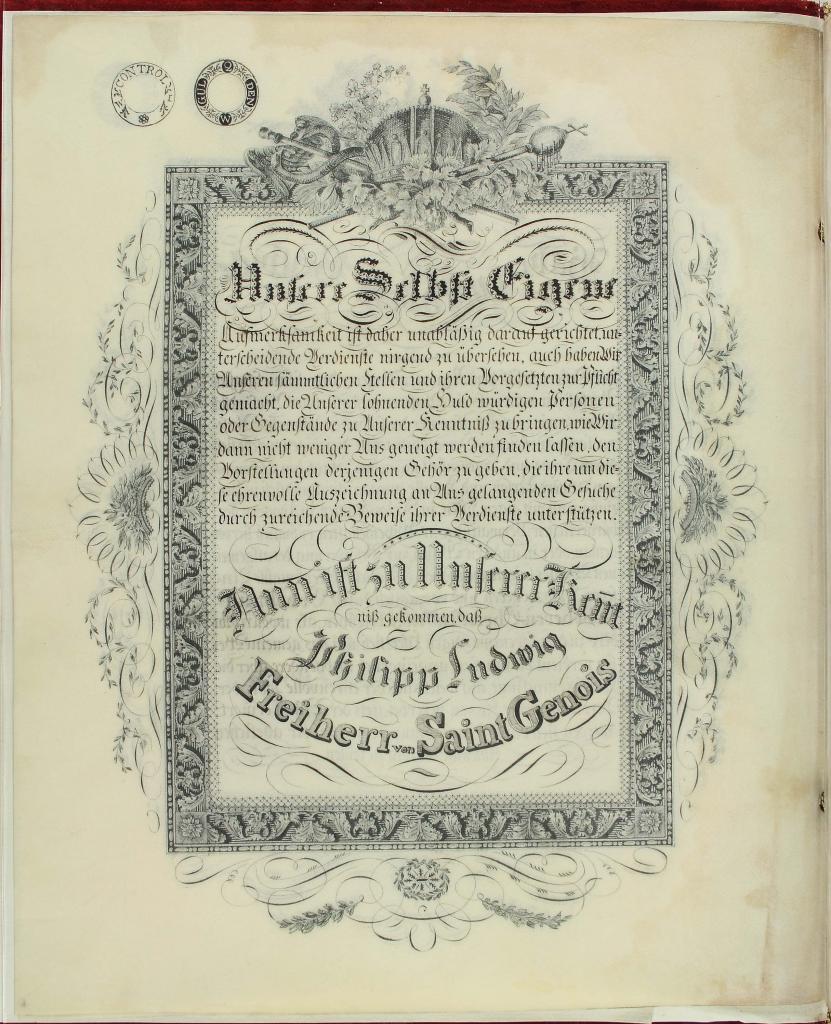 CONTROL
GULDEN W
Unsere Selbst Eigene
Aufmerksamkeit ist daher unabläßig darauf gerichtet, un-
terscheidende Verdienste nirgend zu übersehen, auch haben Wir
Unseren sämmtlichen Stellen und ihren Vorgesetzten zur Pflicht
gemacht, die Unserer lohnenden Huld würdigen Personen
oder Gegenstände zu Unserer Kenntniß zu bringen, wie Wir
dann nicht weniger Uns geneigt werden finden lassen, den
Vorstellungen derjenigen Gehör zu geben, die ihre um die-
se ehrenvolle Auszeichnung an Uns gelangenden Gesuche
durch zureichende Beweise ihrer Verdienste unterstützen.
Nun ist zu Unserer Ken̄t
niß gekommen, daß
Philipp Ludwig
Freiherr von Saint Genois